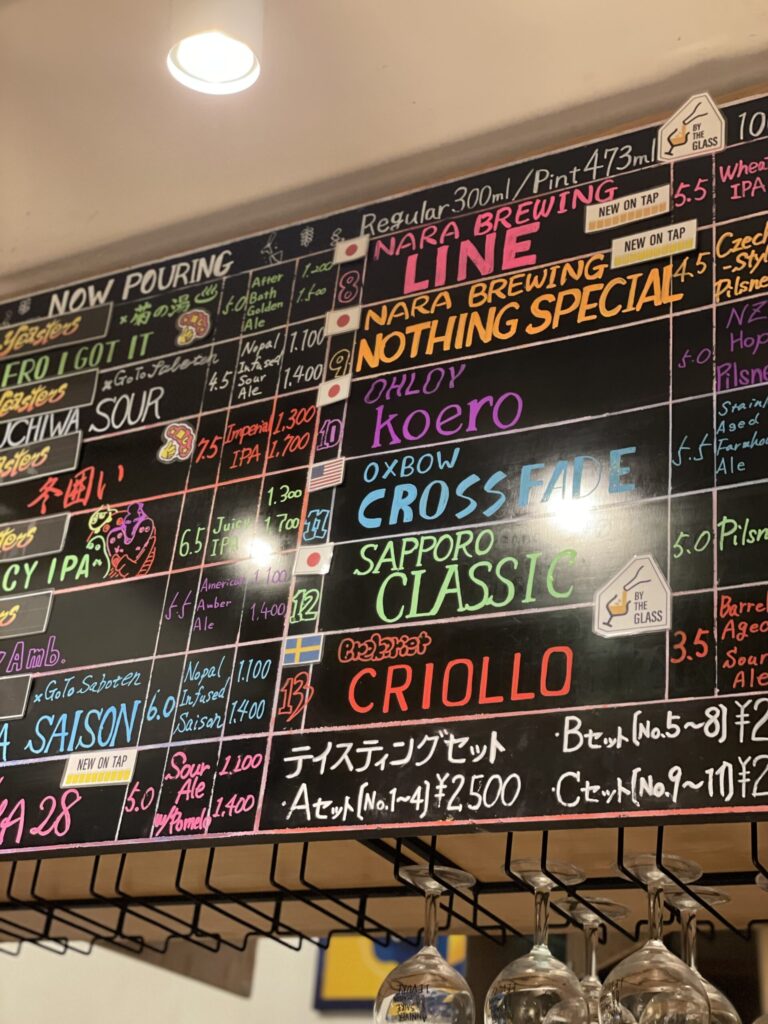 NOW POURING
Regular 300ml/Pint 473ml
BY THE GLASS
10
×菊の湯♨
FRO I GOT IT
5.0
After Bath Golden Ale
1.200
1.500
×GoTo Saboten
UCHIWA SOUR
4.5
Nopal Infused Sour Ale
1.100
1.400
冬囲い
7.5
Imperial IPA
1.300
1.700
CY IPA
6.5
Juicy IPA
1.300
1.700
Amb.
5.5
American Amber Ale
1.100
1.400
×GoTo Saboten
A SAISON
6.0
Nopal Infused Saison
1.100
1.400
NEW ON TAP
A 28
5.0
Sour Ale w/Pomelo
1.100
1.400
8
NARA BREWING
LINE
NEW ON TAP
5.5
Wheat IPA
9
NARA BREWING
NOTHING SPECIAL
NEW ON TAP
4.5
Czech-Style Pilsner
10
OHLOY
koero
5.0
NZ Hop Pilsne
11
OXBOW
CROSSFADE
5.5
Stainl Aged Farmhou Ale
12
SAPPORO
CLASSIC
5.0
Pilsn
BY THE GLASS
13
Brekeriet
CRIOLLO
3.5
Barrel Aged Sour Ale
テイスティングセット
・Aセット(No.1~4)¥2500
・Bセット(No.5~8)¥2
・Cセット(No.9~11)¥2